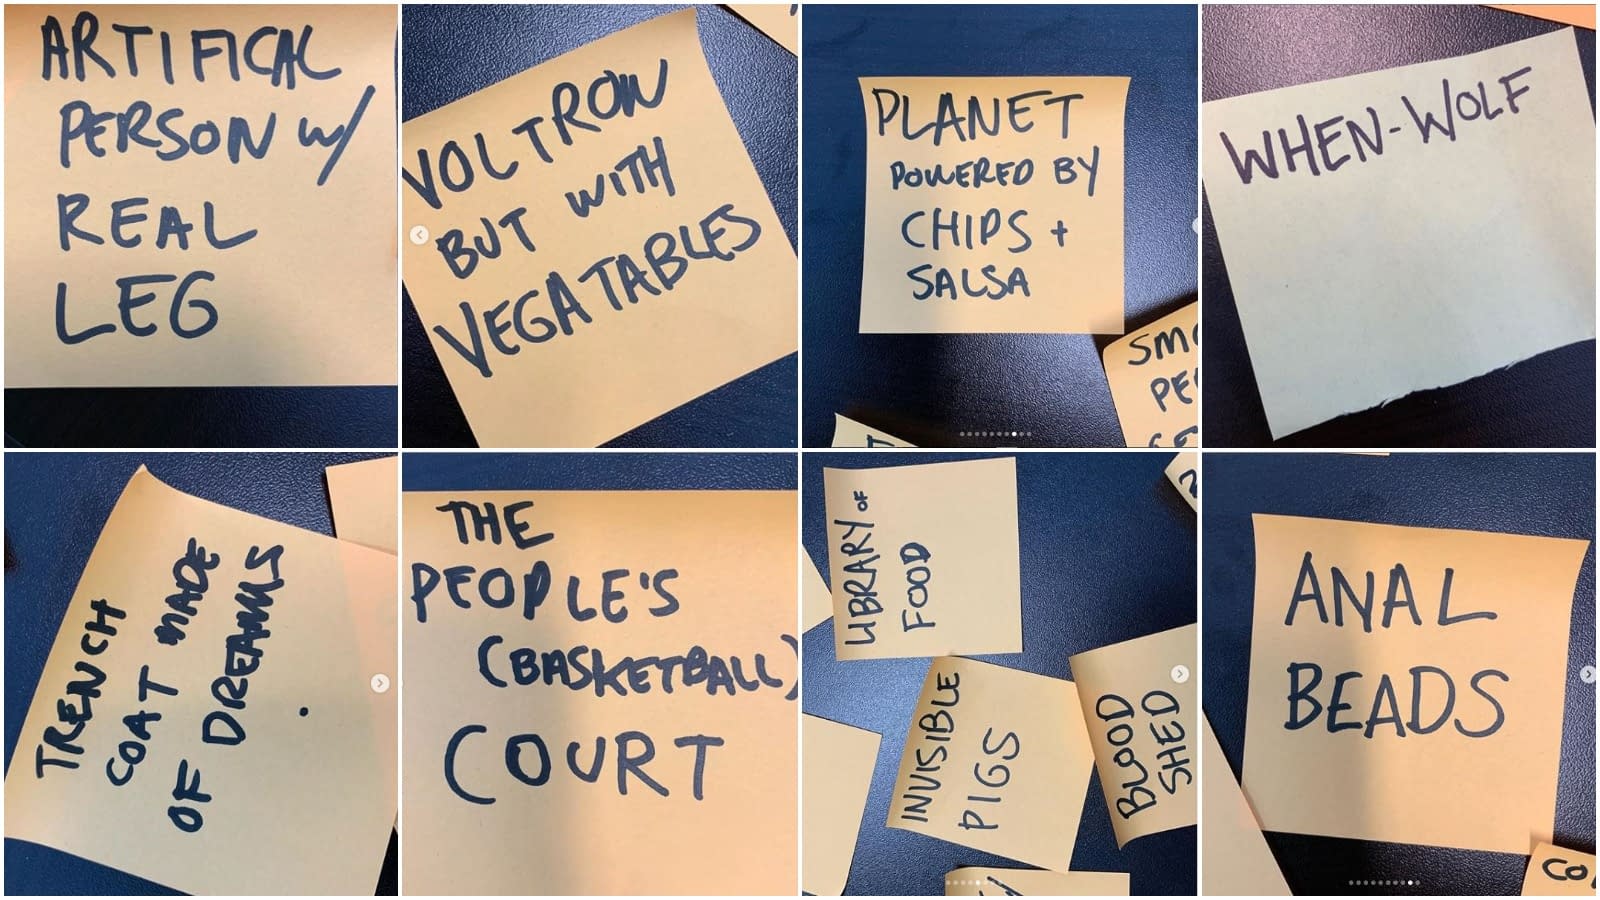 ARTIFICAL
PERSON W/
REAL
LEG
VOLTRON
BUT WITH
VEGATABLES
PLANET
POWERED BY
CHIPS +
SALSA
WHEN-WOLF
TRENCH
COAT MADE
OF DREAMS
THE
PEOPLE'S
(BASKETBALL)
COURT
LIBRARY OF
FOOD
INVISIBLE
PIGS
BLOOD
SHED
ANAL
BEADS